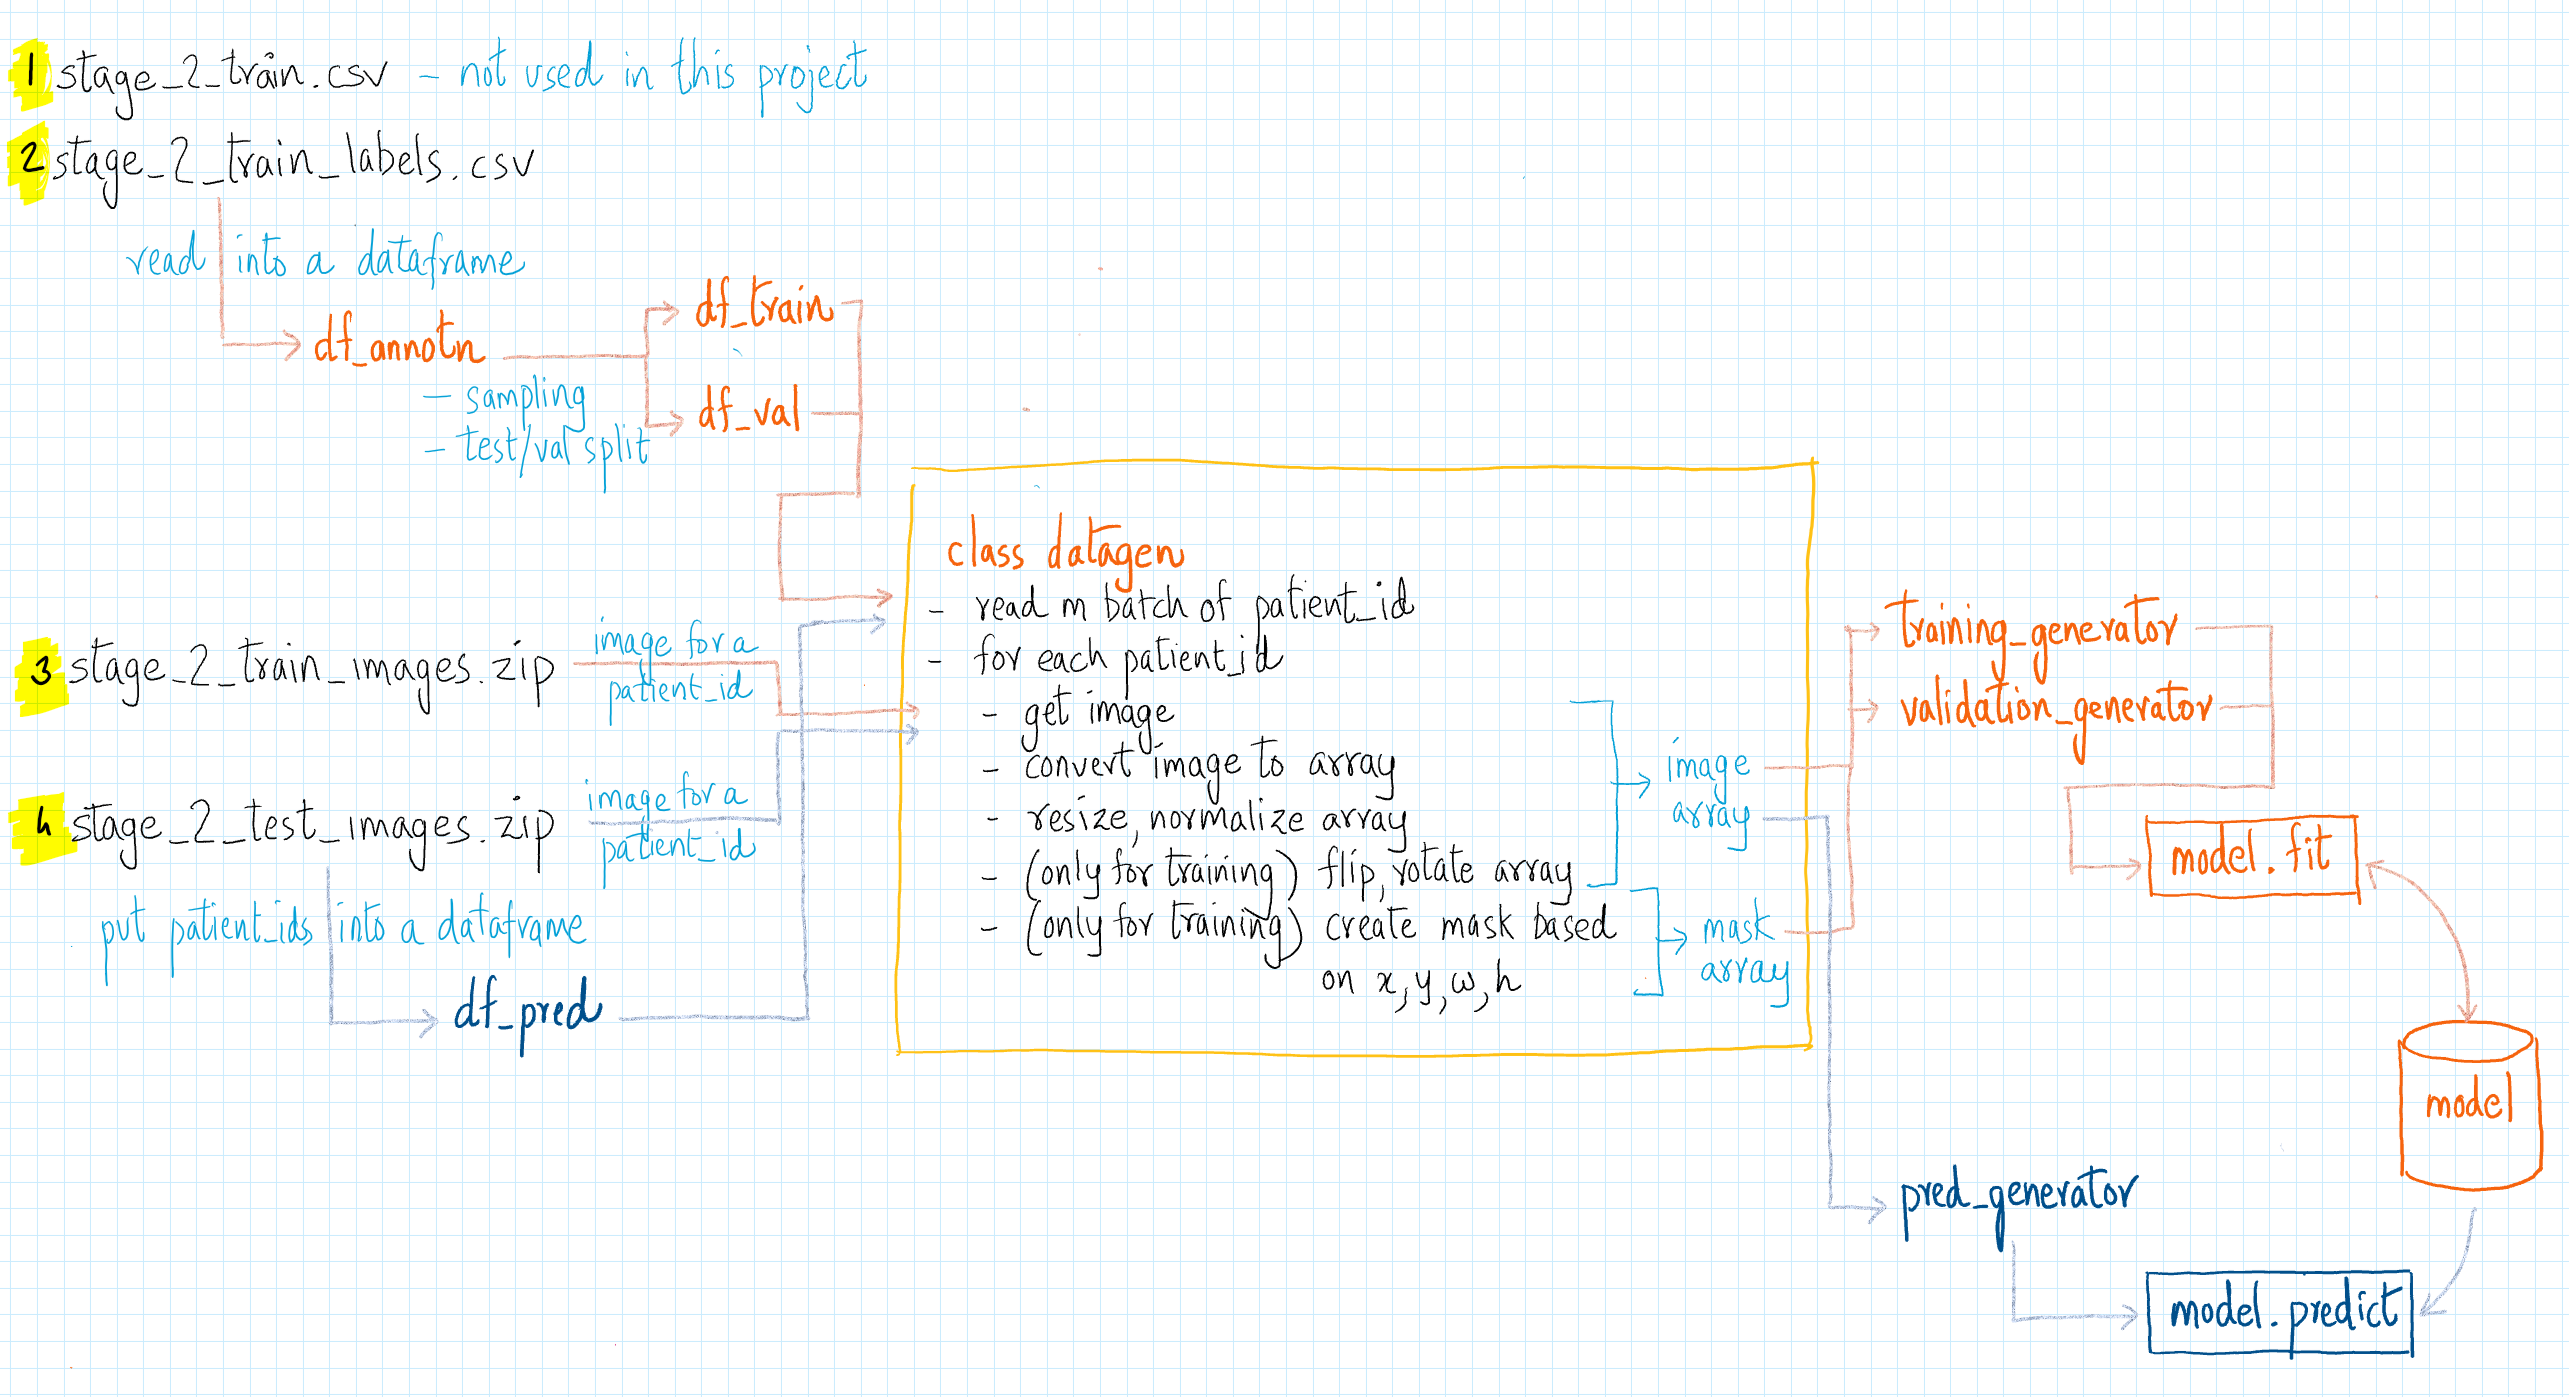 1 stage_2_train.csv - not used in this project
2 stage_2_train_labels.csv
read into a dataframe
df_annotn
- sampling
- test/val split
df_train
df_val
3 stage_2_train_images.zip
image for a
patient_id
4 stage_2_test_images.zip
image for a
patient_id
put patient_ids into a dataframe
df_pred
class datagen
- read m batch of patient_id
- for each patient_id
- get image
- convert image to array
- resize, normalize array
- (only for training) flip, rotate array
- (only for training) create mask based
on x, y, w, h
image
array
mask
array
training_generator
validation_generator
model.fit
model
pred_generator
model.predict